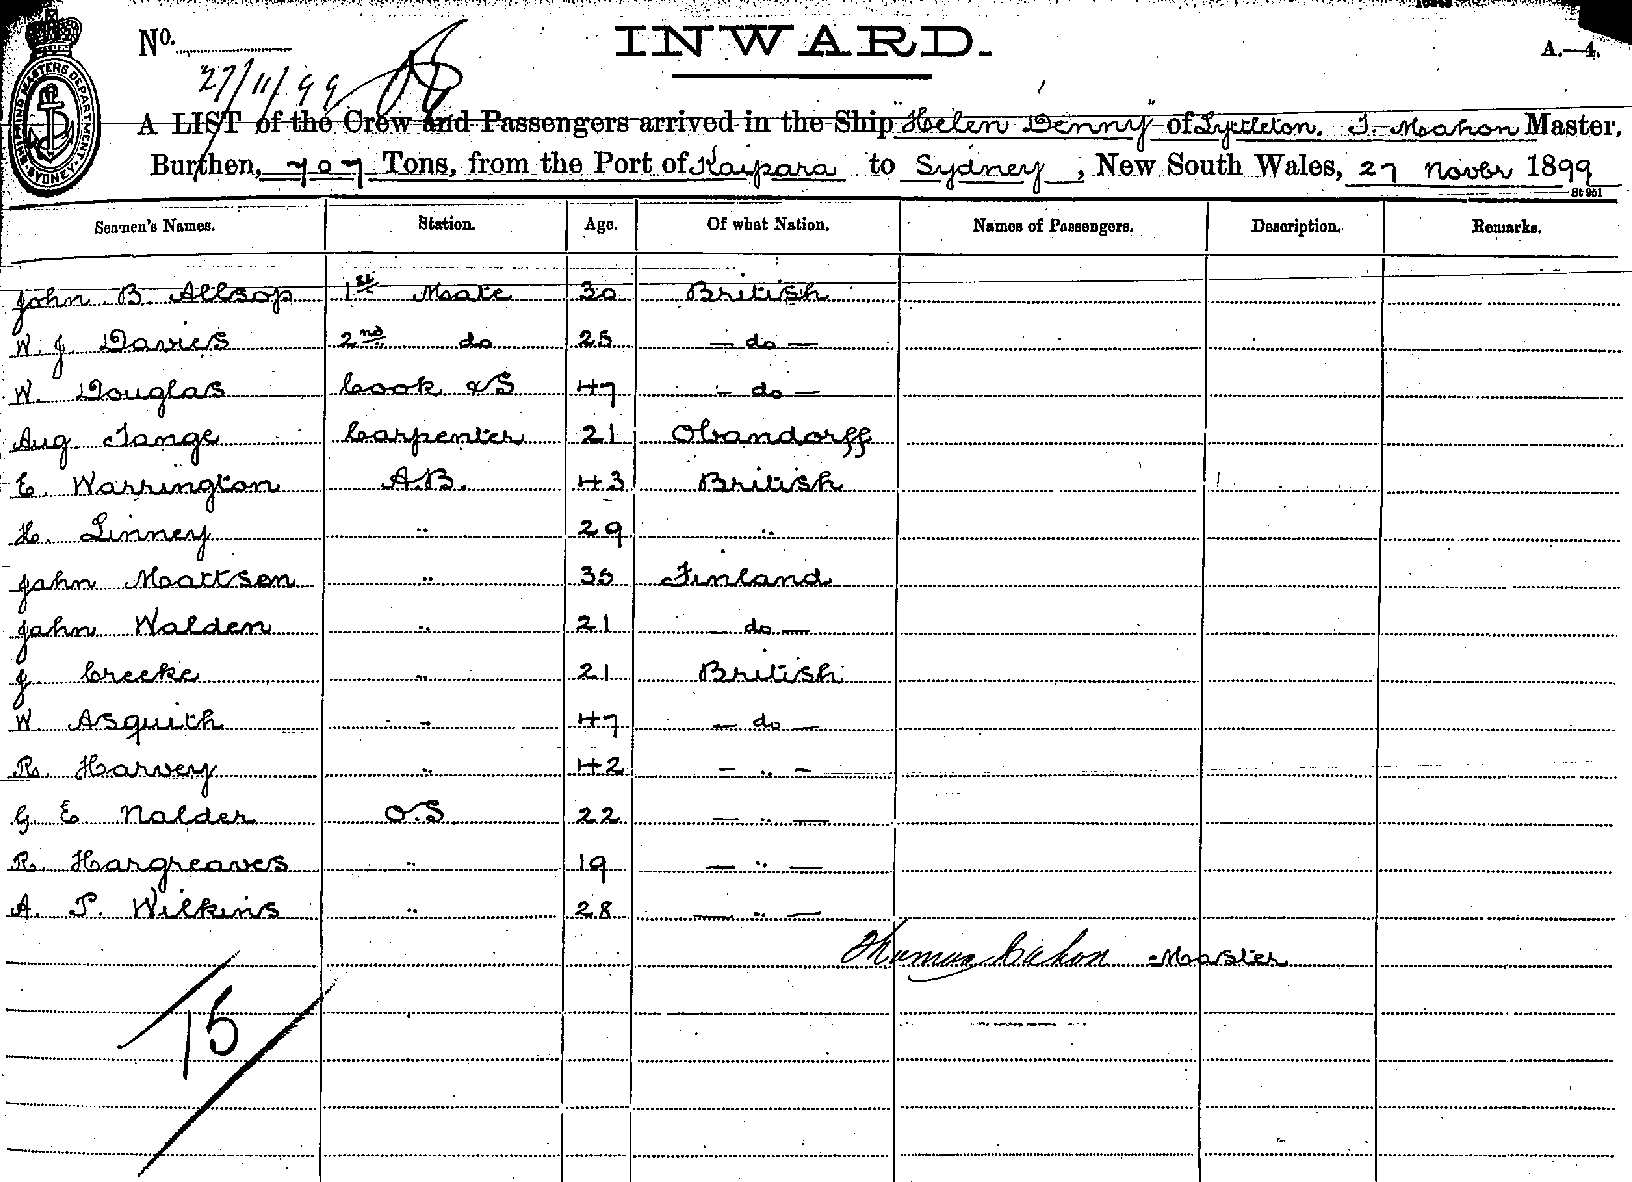 No.
INWARD.
A.—4.
27/11/99
SHIPPING MASTERS DEPARTMENT SYDNEY
A LIST of the Crew and Passengers arrived in the Ship "Helen Denny" of Lyttleton. T. Mahon Master,
Burthen, 707 Tons, from the Port of Kaipara to Sydney, New South Wales, 27 Novbr 1899
St 951
Seamen's Names. Station. Age. Of what Nation. Names of Passengers. Description. Remarks.
John B. Allsop 1st Mate 30 British
W. J. Davies 2nd do 25 — do —
W. Douglas Cook & S 47 — do —
Aug Tange Carpenter 21 Obandorff
E. Warrington A.B. 43 British
H. Linney " 29 "
John Maartsen " 35 Finland
John Walden " 21 — do —
J. Creeke " 21 British
W. Asquith " 47 — do —
R. Harvey " 42 — " —
G. E Nalder O.S 22 — " —
R. Hargreaves " 19 — " —
A. P. Wilkins " 28 — " —
Thomas Mahon Master
15